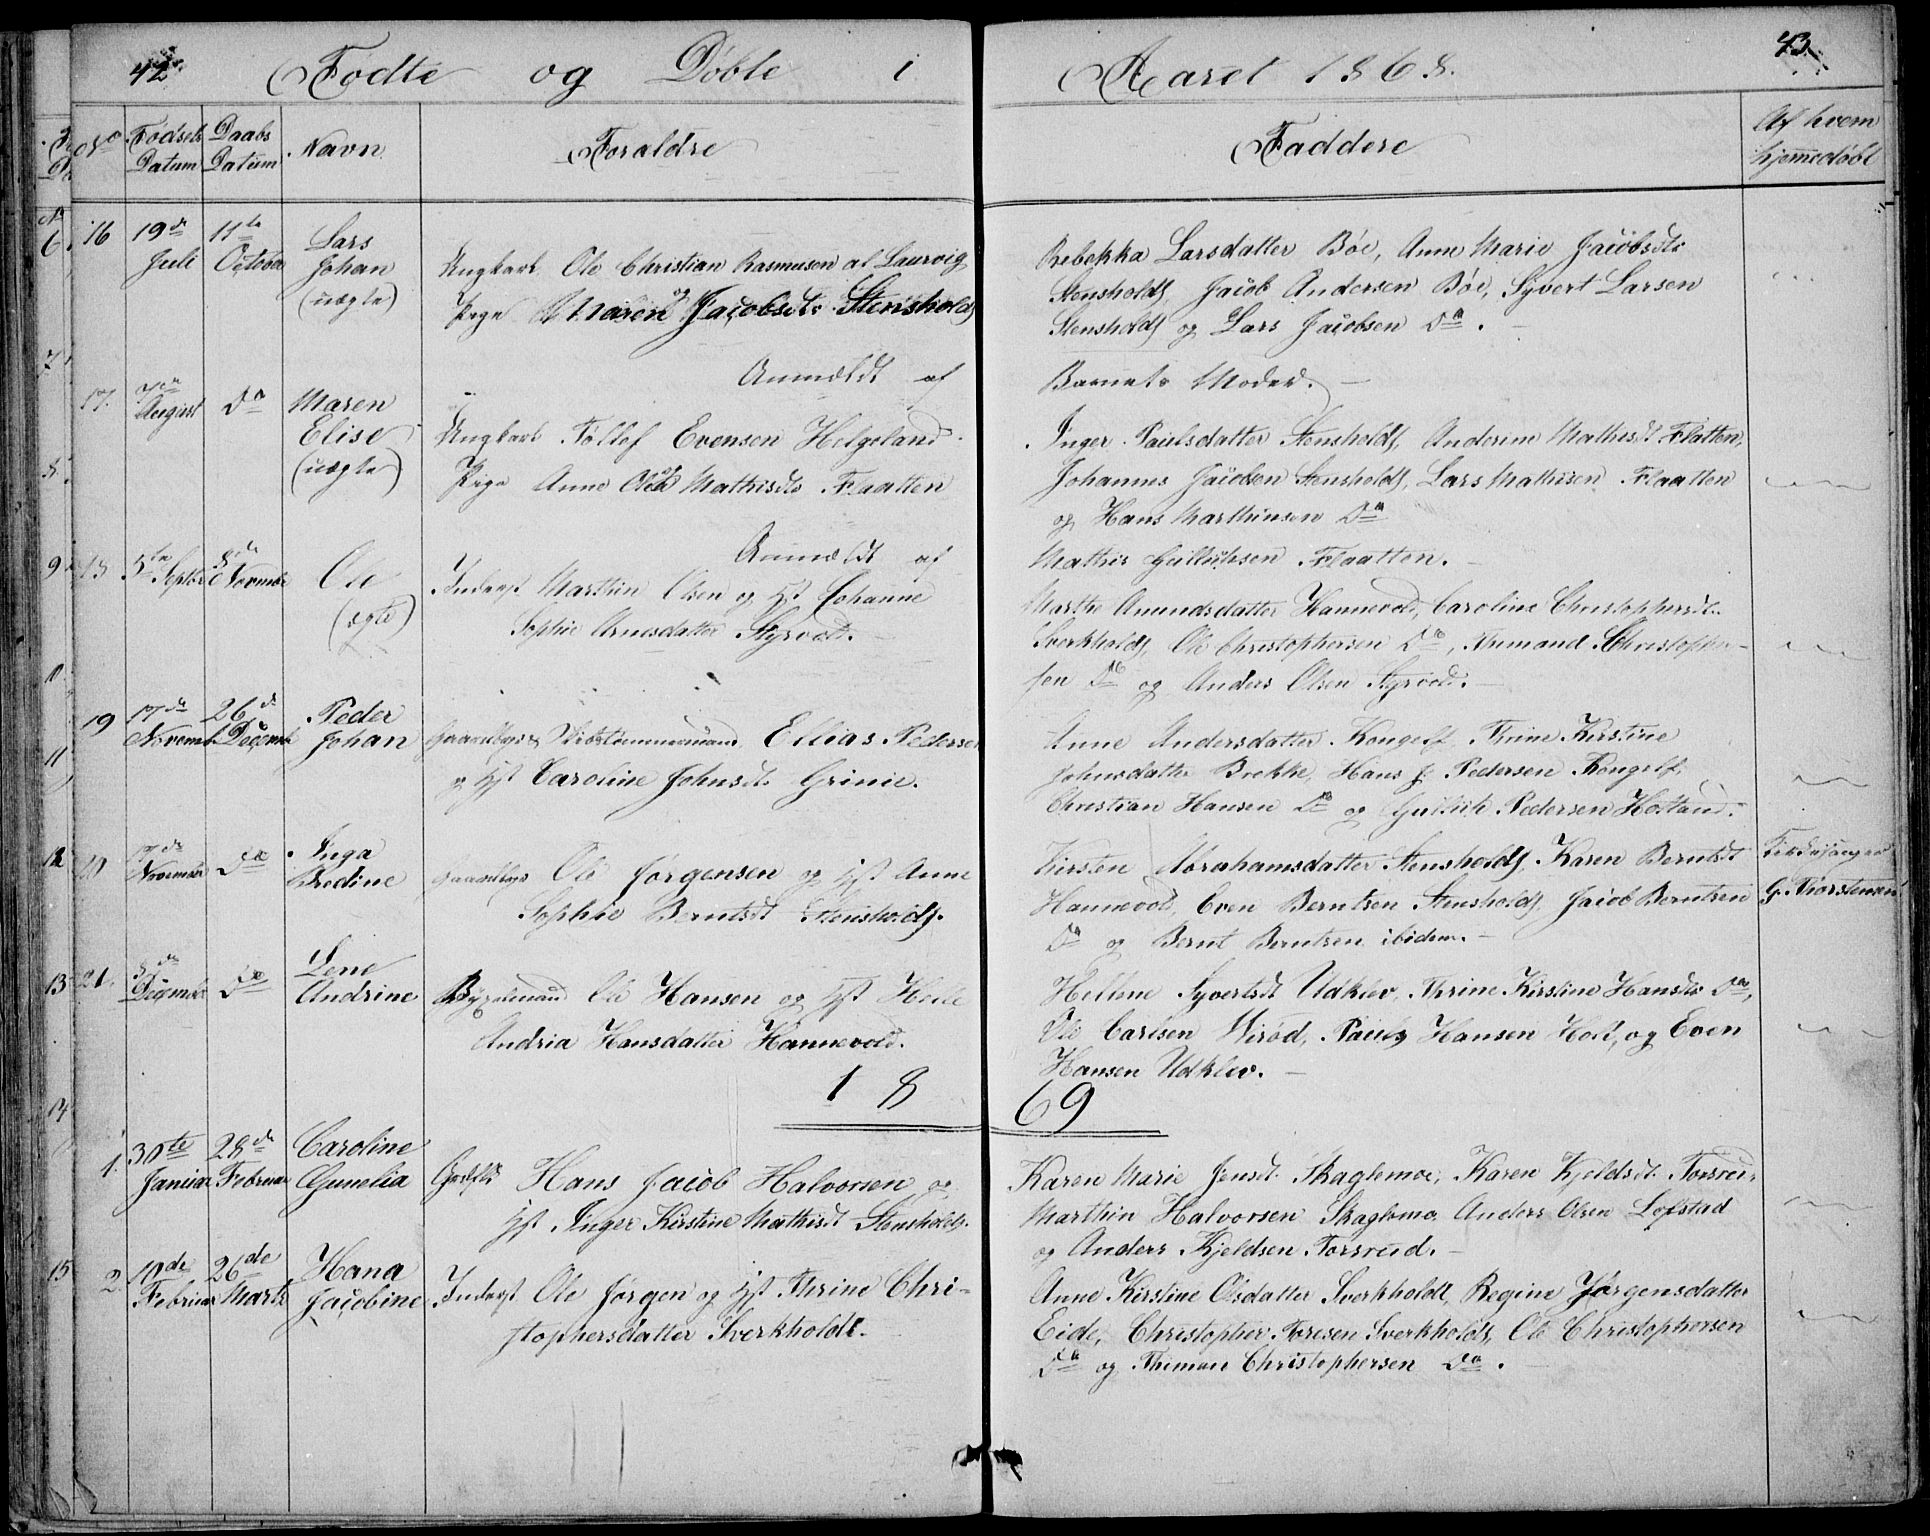 42 Fodte og Döbte i Aaret 1868. 43
No Fødsels Datum Daabs Datum Navn Foraldre Faddere Af hvem hjemmedøbt
16 19de Juli 11te Octobr Lars Johan (uægte)
Ungkarl Ole Christian Rasmusen af Laurvig
og
Pige Maren Jacobsdtr Stensholdt
Rebekka Larsdatter Böe, Anne Marie Jacobsdtr
Stensholdt, Jacob Andersen Böe, Syvert Larsen
Stensholdt og Lars Jacobsen Do.
Anmeldt af Barnets Moder.
17. August Do Maren Elise (uægte)
Ungkarl Tollef Evensen Helgeland
og
Pige Anne Mathisdtr Flaatten
Inger Paulsdatter Stensholdt, Anderine Mathisdt Flatten,
Johannes Jacobsen Stensholdt, Lars Mathisen Flaatten
og Hans Marthinsen Do
Anmeldt af Mathis Gulliksen Flaatten.
18 5te Septbr 8de Novembr Ole (ægte)
Inderst Marthin Olsen og Hst Johanne
Sophie Arnesdatter Styrvold.
Marthe Amundsdatter Hannevold, Caroline Christophersdt.
Sverkholdt, Ole Christophersen Do, Thimand Christopher-
sen Do og Anders Olsen Styrvold.
19 17de Novemb. 26de Decembr Peder Johan
Gaardbr & Skibstømmermand Ellias Pedersen
og Hst Caroline Johnsdtr Grinie.
Anne Andersdatter Kongelf, Thrine Kirstine
Johnsdatter Brekke, Hans J. Pedersen Kongelf,
Christian Hansen Do og Gullik Pedersen Holtand.
20 17de Novembr Do Inga Bredine
Gaardbr Ole Jørgensen og Hst Anne
Sophie Berntsdt Stensholdt.
Kirsten Abrahamsdatter Stensholdt, Karen Berntsdt
Hannevold, Even Berntsen Stensholdt, Jacob Berntsen
Do og Bernt Berntsen ibidem.
Kirkesanger G. Thorstensen
21. 8de Decembr Do Lene Andrine
Bygselmand Ole Hansen og Hst Helle
Andria Hansdatter Hannevold.
Hellene Syvertsdt Udklev, Thrine Kirstine Hansdtr Do,
Ole Carlsen Virød, Pauly Hansen Holt, og Even
Hansen Udklev.
1869
1. 30te Januar 28de Februar Caroline Gunelia
Hans Jacob Halvorsen og
Hst Inger Kirstine Mathisdt Stensholdt.
Karen Marie Jensdt. Skaglemoe, Karen Kjeldsdt. Torsrud,
Marthin Halvorsen Skaglemo, Anders Olsen Løfstad
og Anders Kjeldsen Torsrud.
2. 10de Februar 26de Marts Hana Jacobine
Inderst Ole Jørgen og Hst Thrine Chri-
stophersdatter Sverkholdt.
Anne Kirstine Olsdatter Sverkholdt, Regine Jørgensdatter
Eide, Christopher Toresen Sverkholdt, Ole Christophersen
Do og Thiman Christophersen Do.